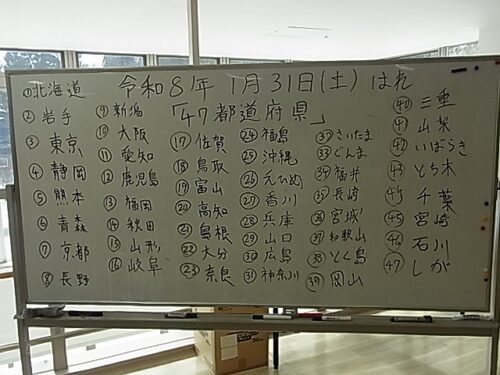 令和8年 1月31日(土) はれ
「47都道府県」
①北海道
②岩手
③東京
④静岡
⑤熊本
⑥青森
⑦京都
⑧長野
⑨新潟
⑩大阪
⑪愛知
⑫鹿児島
⑬福岡
⑭秋田
⑮山形
⑯岐阜
⑰佐賀
⑱鳥取
⑲富山
⑳高知
㉑島根
㉒大分
㉓奈良
㉔福島
㉕沖縄
㉖えひめ
㉗香川
㉘兵庫
㉙山口
㉚広島
㉛神奈川
㉜さいたま
㉝ぐんま
㉞福井
㉟長崎
㊱宮城
㊲和歌山
㊳とく島
㊴岡山
㊵三重
㊶山梨
㊷いばらき
㊸とち木
㊹千葉
㊺宮崎
㊻石川
㊼しが